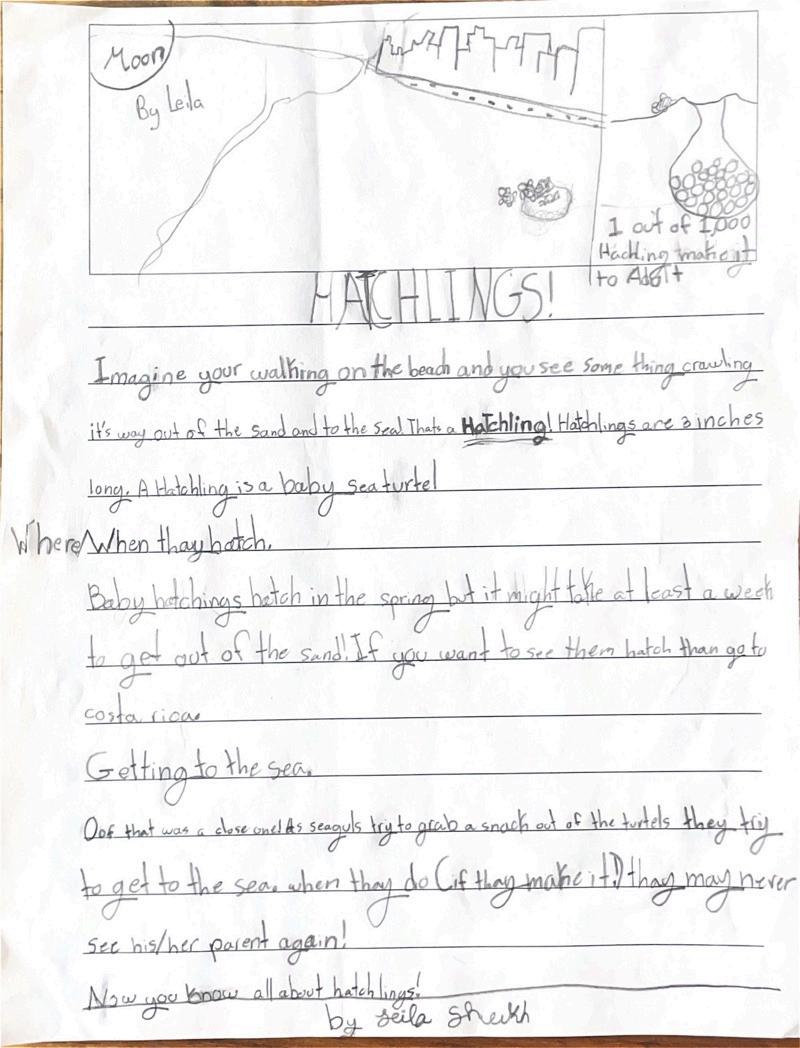 Moon
By Leila
1 out of 1,000
Hackling make it
to Adslt
HATCHLINGS!
Imagine your walking on the beach and you see some thing crawling
it's way out of the sand and to the sea! Thats a Hatchling! Hatchlings are 3 inches
long. A Hatchling is a baby sea turtel
Where/When thay hatch.
Baby hatchings hatch in the spring but it might take at least a week
to get out of the sand! If you want to see them hatch than go to
costa rica.
Getting to the sea.
Oof that was a close one! As seaguls try to grab a snack out of the turtels they try
to get to the sea. when thay do (if thay make it!) thay may never
see his/her parent again!
Now you know all about hatchlings!
by Leila Sheikh